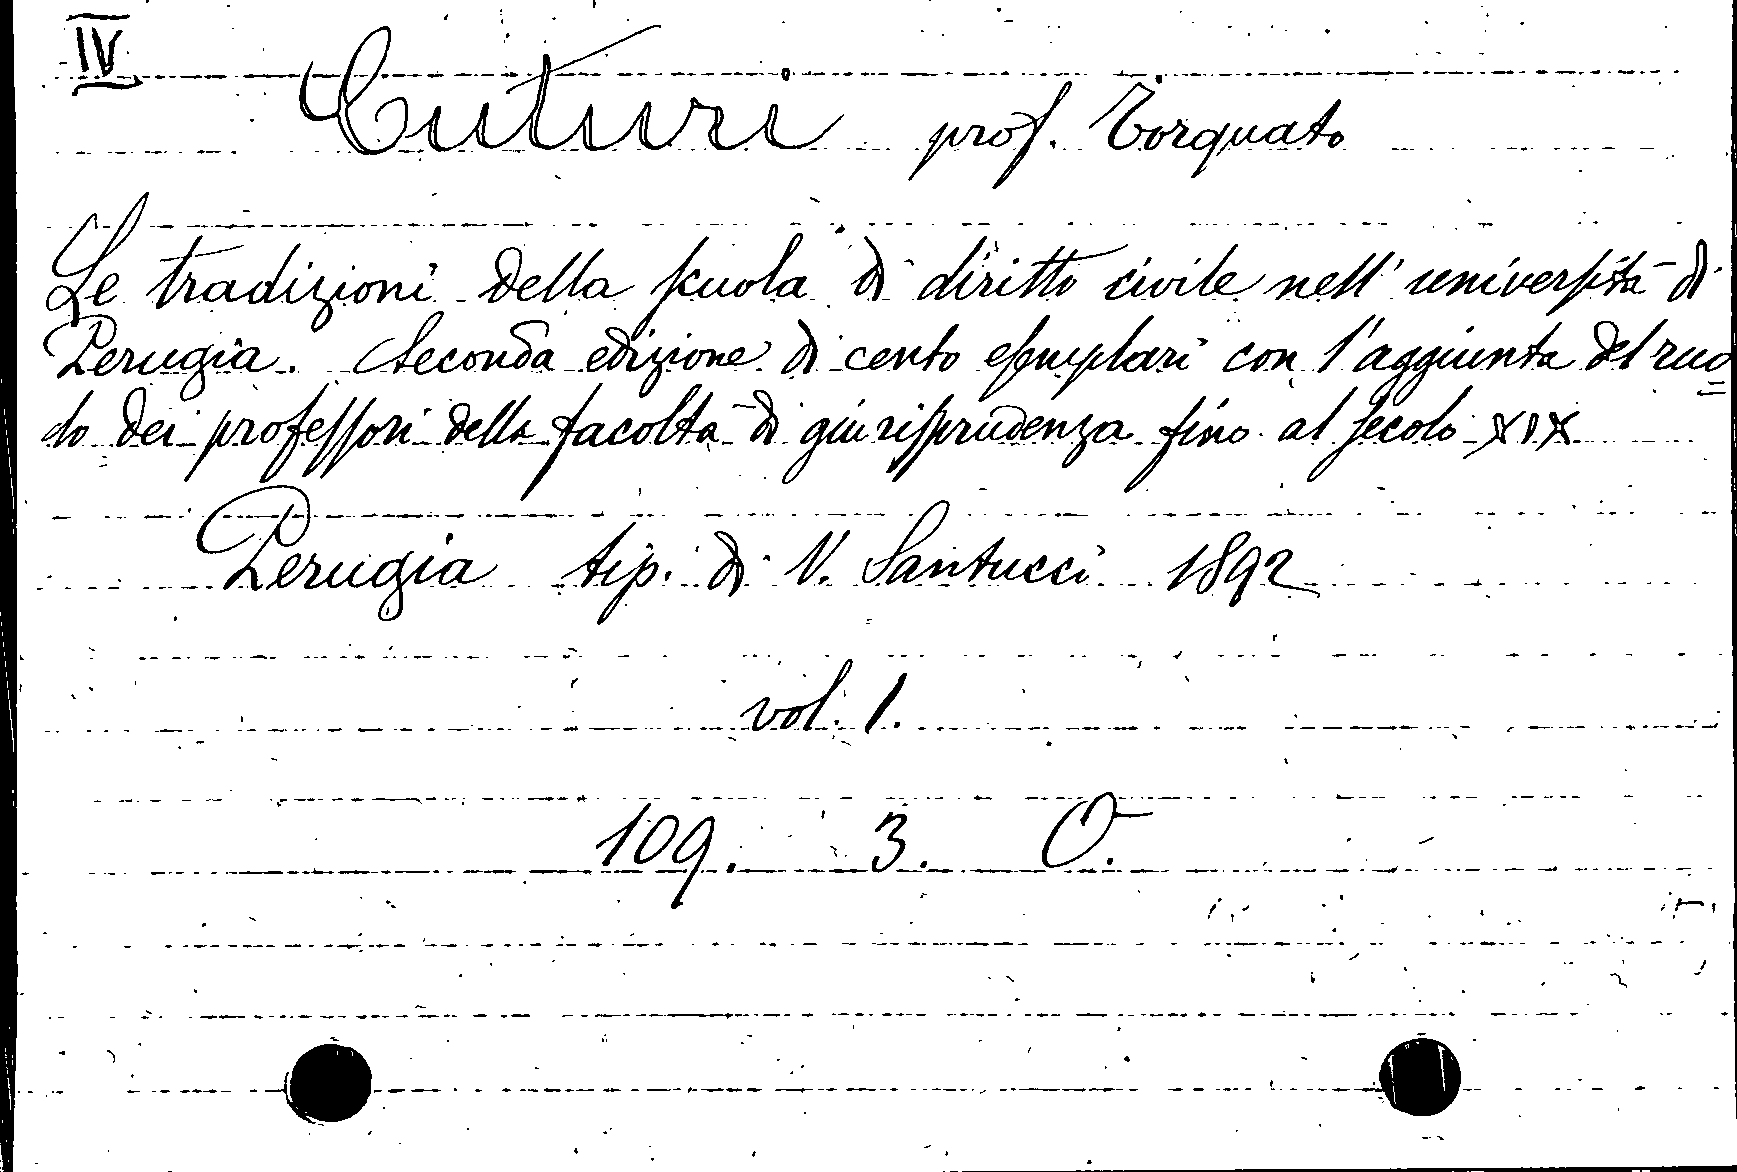 IV
Cuturi prof. Torquato
Le tradizioni della scuola di diritto civile nell'università di
Perugia. Seconda edizione di cento esemplari con l'aggiunta del ruo=
lo dei professori della facoltà di giurisprudenza fino al secolo XIX
Perugia tip. di V. Santucci 1892
vol. 1.
109. 3. O.